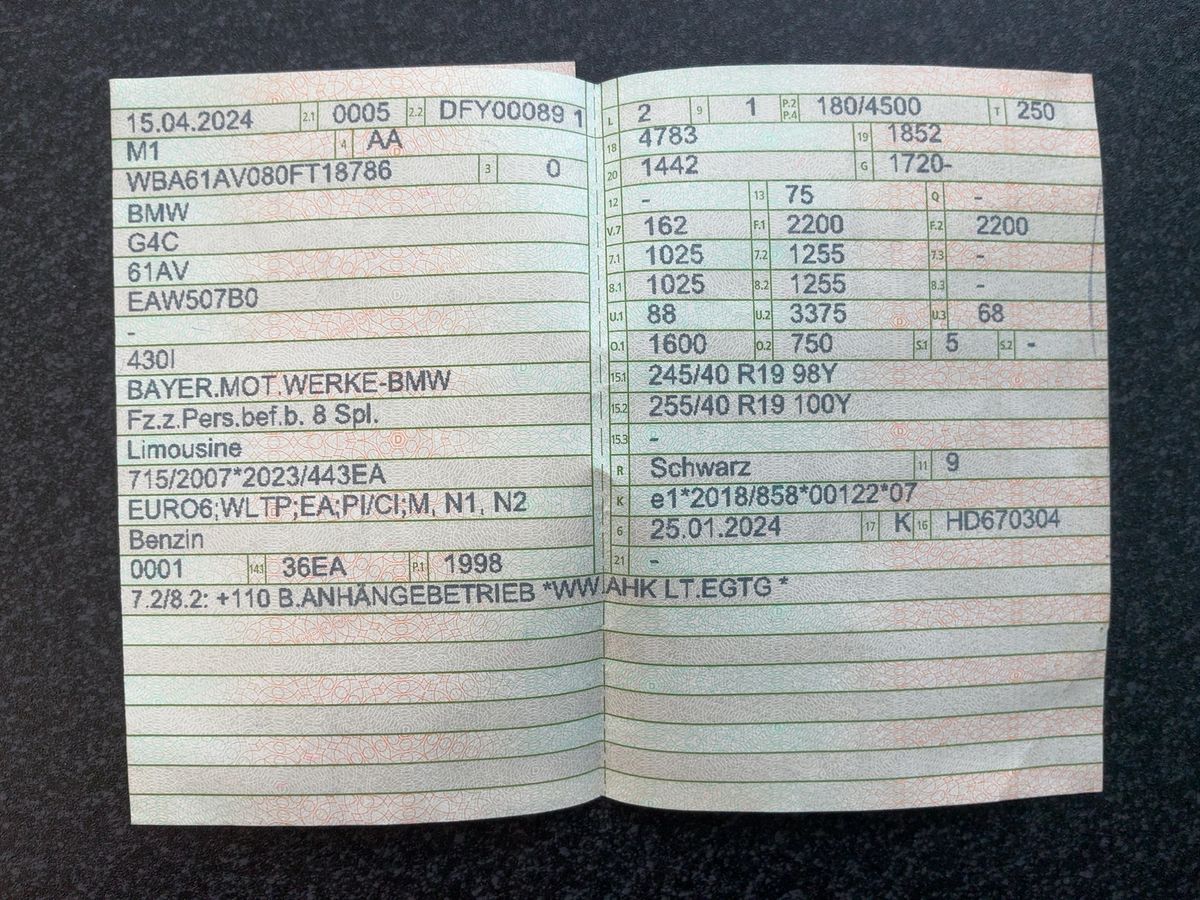 15.04.2024 2.1 0005 2.2 DFY00089 1
M1 4 AA
WBA61AV080FT18786 3 0
BMW
G4C
61AV
EAW507B0
-
430I
BAYER.MOT.WERKE-BMW
Fz.z.Pers.bef.b. 8 Spl.
Limousine
715/2007*2023/443EA
EURO6;WLTP;EA;PI/CI;M, N1, N2
Benzin
0001 14.1 36EA P.1 1998
L 2 9 1 P.2 P.4 180/4500 T 250
18 4783 19 1852
20 1442 G 1720-
12 - 13 75 Q -
V.7 162 F.1 2200 F.2 2200
7.1 1025 7.2 1255 7.3 -
8.1 1025 8.2 1255 8.3 -
U.1 88 U.2 3375 U.3 68
O.1 1600 O.2 750 S.1 5 S.2 -
15.1 245/40 R19 98Y
15.2 255/40 R19 100Y
15.3 -
R Schwarz 11 9
K e1*2018/858*00122*07
6 25.01.2024 17 K 16 HD670304
21 -
7.2/8.2: +110 B.ANHÄNGEBETRIEB *WW.AHK LT.EGTG *